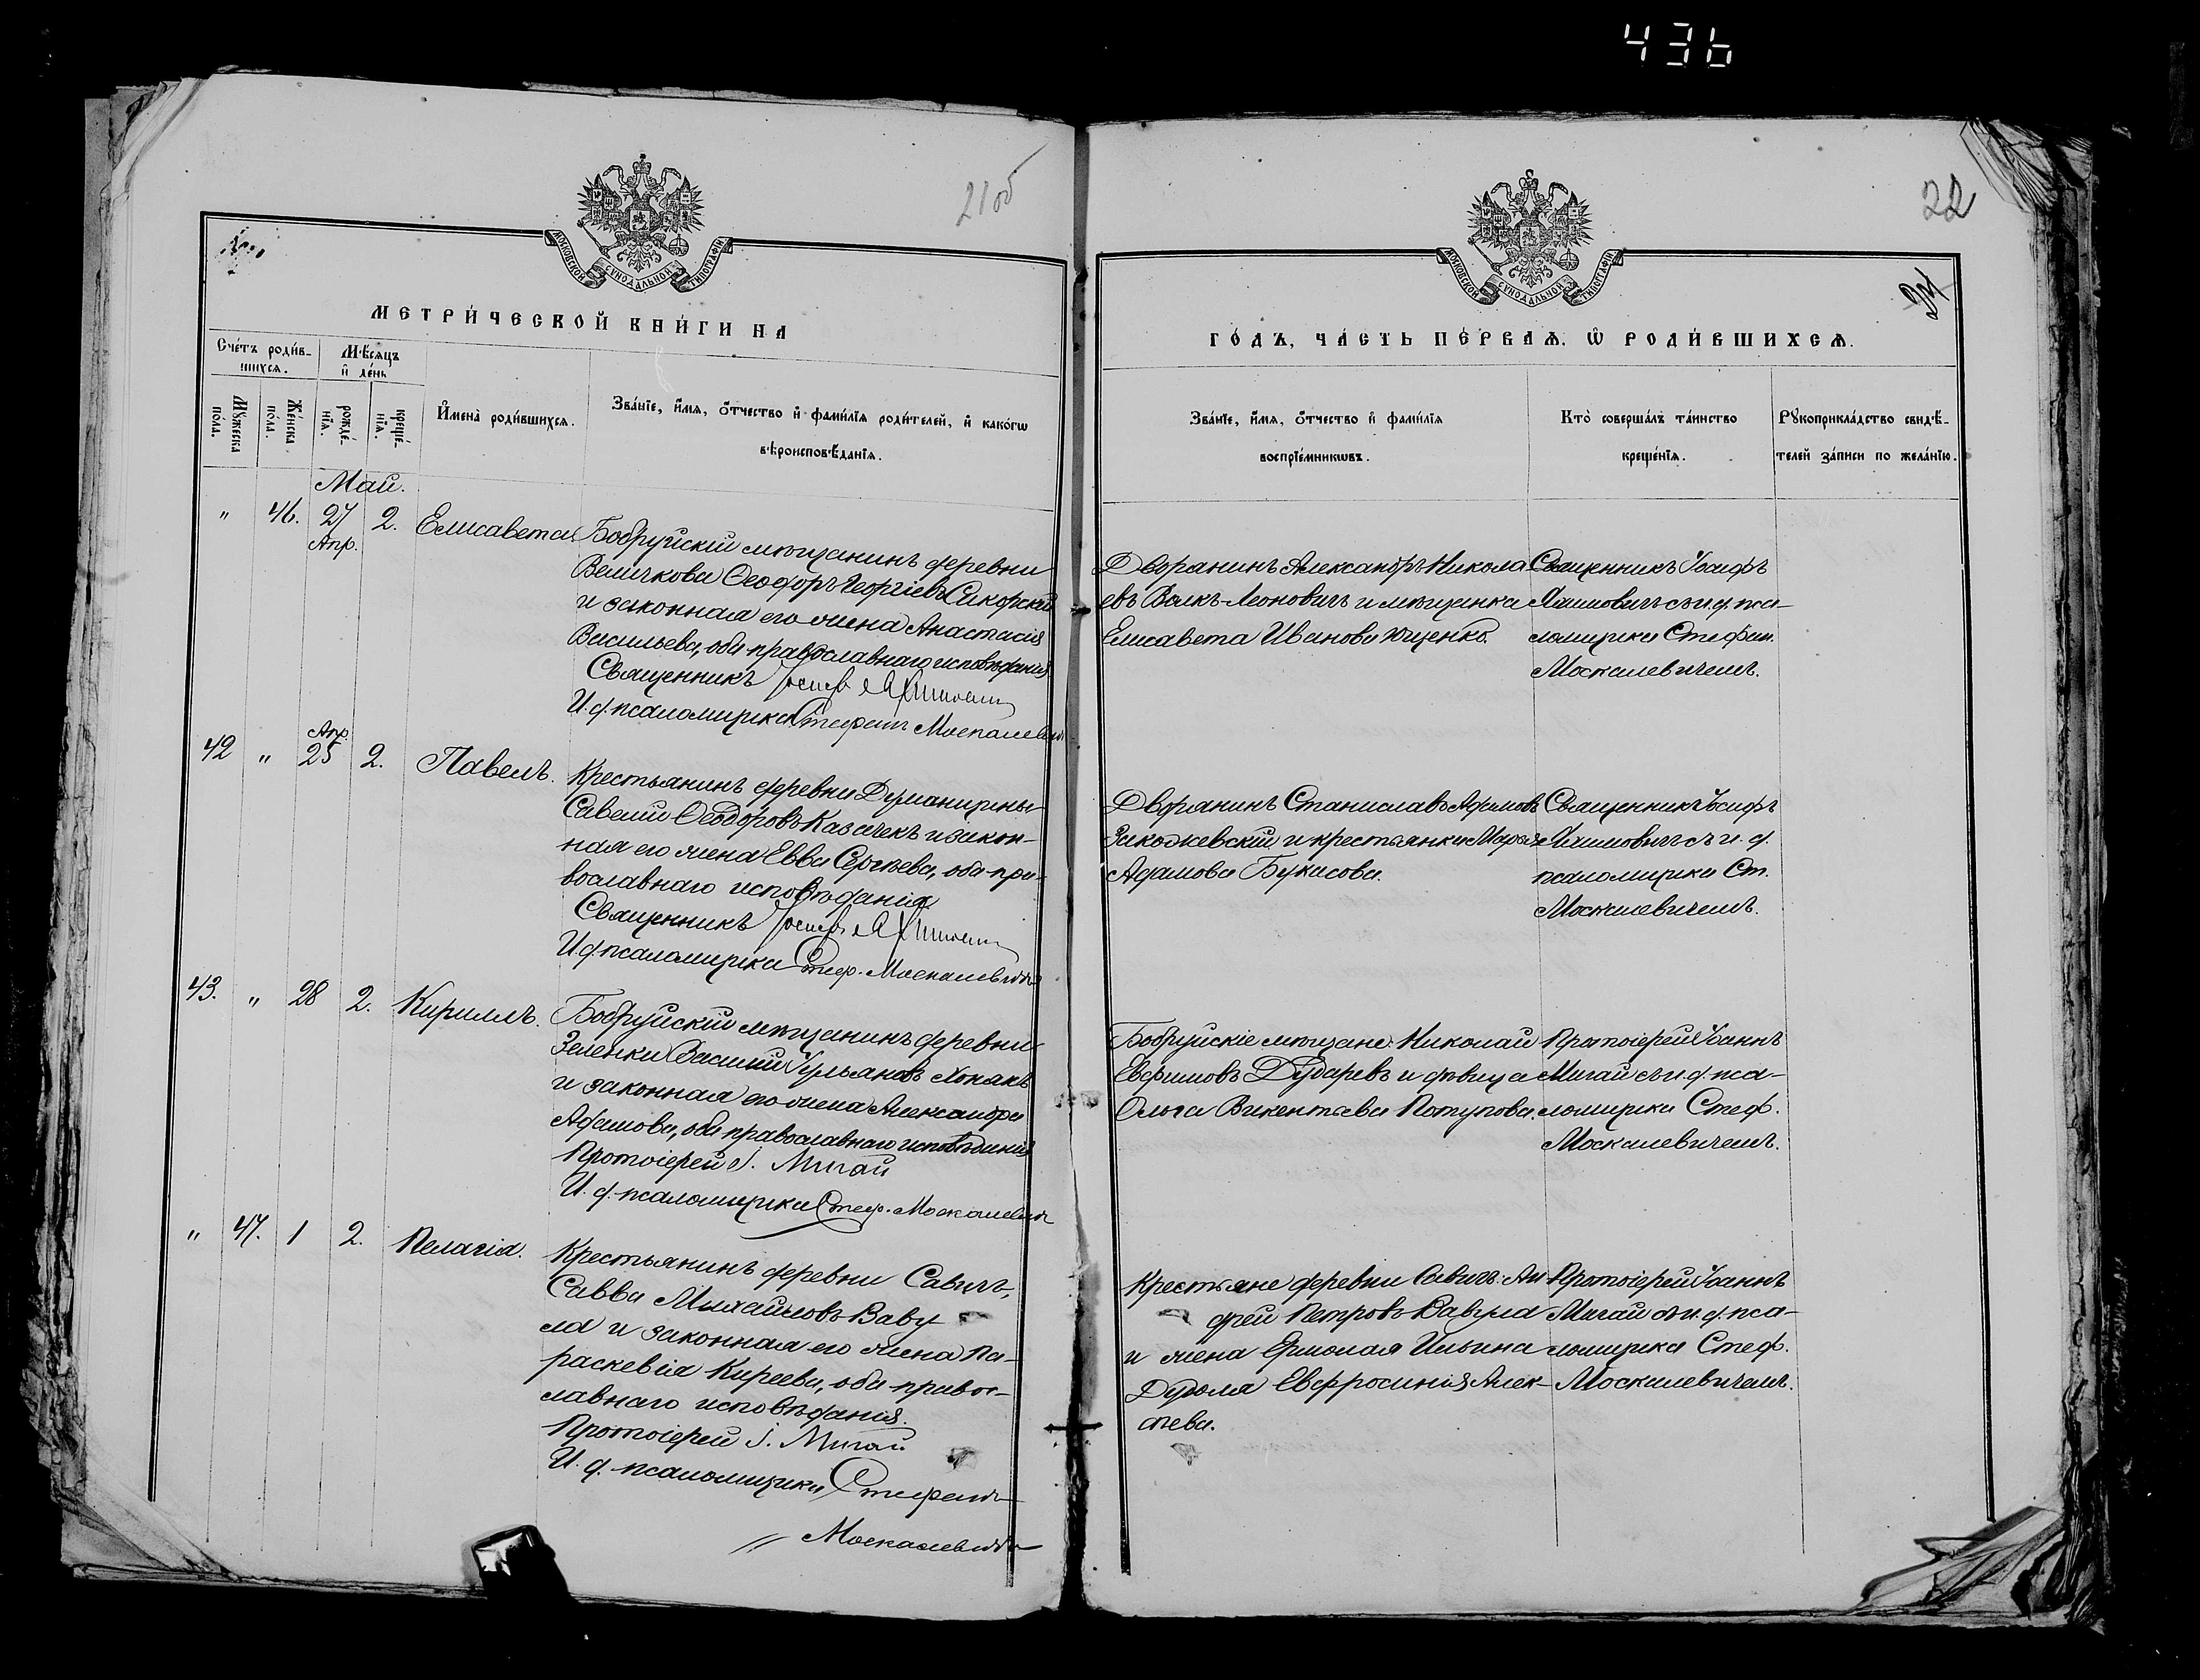 436
21об
22
МОСКОВСКОЙ СѴНОДАЛЬНОЙ ТИПОГРАФІИ
МОСКОВСКОЙ СѴНОДАЛЬНОЙ ТИПОГРАФІИ
МЕТРИ́ЧЕСКОЙ КНИ́ГИ НА
ГО́ДЪ, ЧА́СТЬ ПЕ́РВАѦ, Ѡ РОДИ́ВШИХСѦ.
Сче́тъ роди́в-
шихсѧ.
Мѣ́сѧцъ
и҆ де́нь
Мꙋ́жеска по́ла.
Же́нска по́ла.
рожде́-нїѧ.
креще́-нїѧ.
И҆мена̀ роди́вшихсѧ.
Зва́нїе, и҆́мѧ, ѻ҆́тчество и҆ фами́лїѧ роди́телей, и҆ како́гѡ
вѣроисповѣ́данїѧ.
Зва́нїе, и҆́мѧ, ѻ҆́тчество и҆ фами́лїѧ
воспрїе́мникѡвъ.
Кто̀ соверша́лъ та́инство
креще́нїѧ.
Рꙋкоприкла́дство свидѣ́-
телей за́писи по жела́нїю.
Май.
" 46. 27 2. Елисавета
Апр.
Бобруйскій мѣщанинъ деревни
Величкова Ѳеодоръ Георгіевъ Сикорскій
и законная его жена Анастасія
Васильева, оба православнаго исповѣданія
Священникъ Іосифъ
И. д. псаломщика Стефанъ Москалевичъ
Дворянинъ Александръ Никола-
евъ Волкъ-Леоновичъ и мѣщанка
Елисавета Иванова Ющенко.
Священникъ Іосифъ
Яхимовичъ съ и. д. пса-
ломщика Стефан.
Москалевичемъ.
Апр.
42 " 25 2. Павелъ.
Крестьянинъ деревни Думанщины
Савелій Ѳеодоровъ Казачекъ и закон-
ная его жена Евва Сергѣева, оба пра-
вославнаго исповѣданія
Священникъ Іосифъ
И. д. псаломщика Стеф. Москалевичъ
Дворянинъ Станиславъ Адамовъ
Закожевскій и крестьянка Марья
Адамова Букасова.
Священникъ Іосифъ
Яхимовичъ съ и. д.
псаломщика Ст.
Москалевичемъ.
43. " 28 2. Кириллъ.
Бобруйскій мѣщанинъ деревни
Зеленки Василій Ульяновъ Хонякъ
и законная его жена Александра
Адамова, оба православнаго исповѣданія
Протоіерей І. Мигай
И. д. псаломщика Стеф. Москалевичъ
Бобруйскіе мѣщане: Николай
Евфимовъ Дударевъ и дѣвица
Ольга Викентьева Потупова.
Протоіерей Іоаннъ
Мигай съ и. д. пса-
ломщика Стеф.
Москалевичемъ.
" 47. 1 2. Пелагія.
Крестьянинъ деревни Савичъ,
Савва Михайловъ Ваву
ла и законная его жена Па-
раскевія Киреева, оба правос-
лавнаго исповѣданія.
Протоіерей І. Мигай
И. д. псаломщика Стефанъ
Москалевичъ
Крестьяне деревни Савичъ: Ан
дрей Петровъ Вавула
и жена Ермолая Ильина
Дудоля Евфросинія Алек-
сѣева.
Протоіерей Іоаннъ
Мигай съ и. д. пса-
ломщика Стеф.
Москалевичемъ.